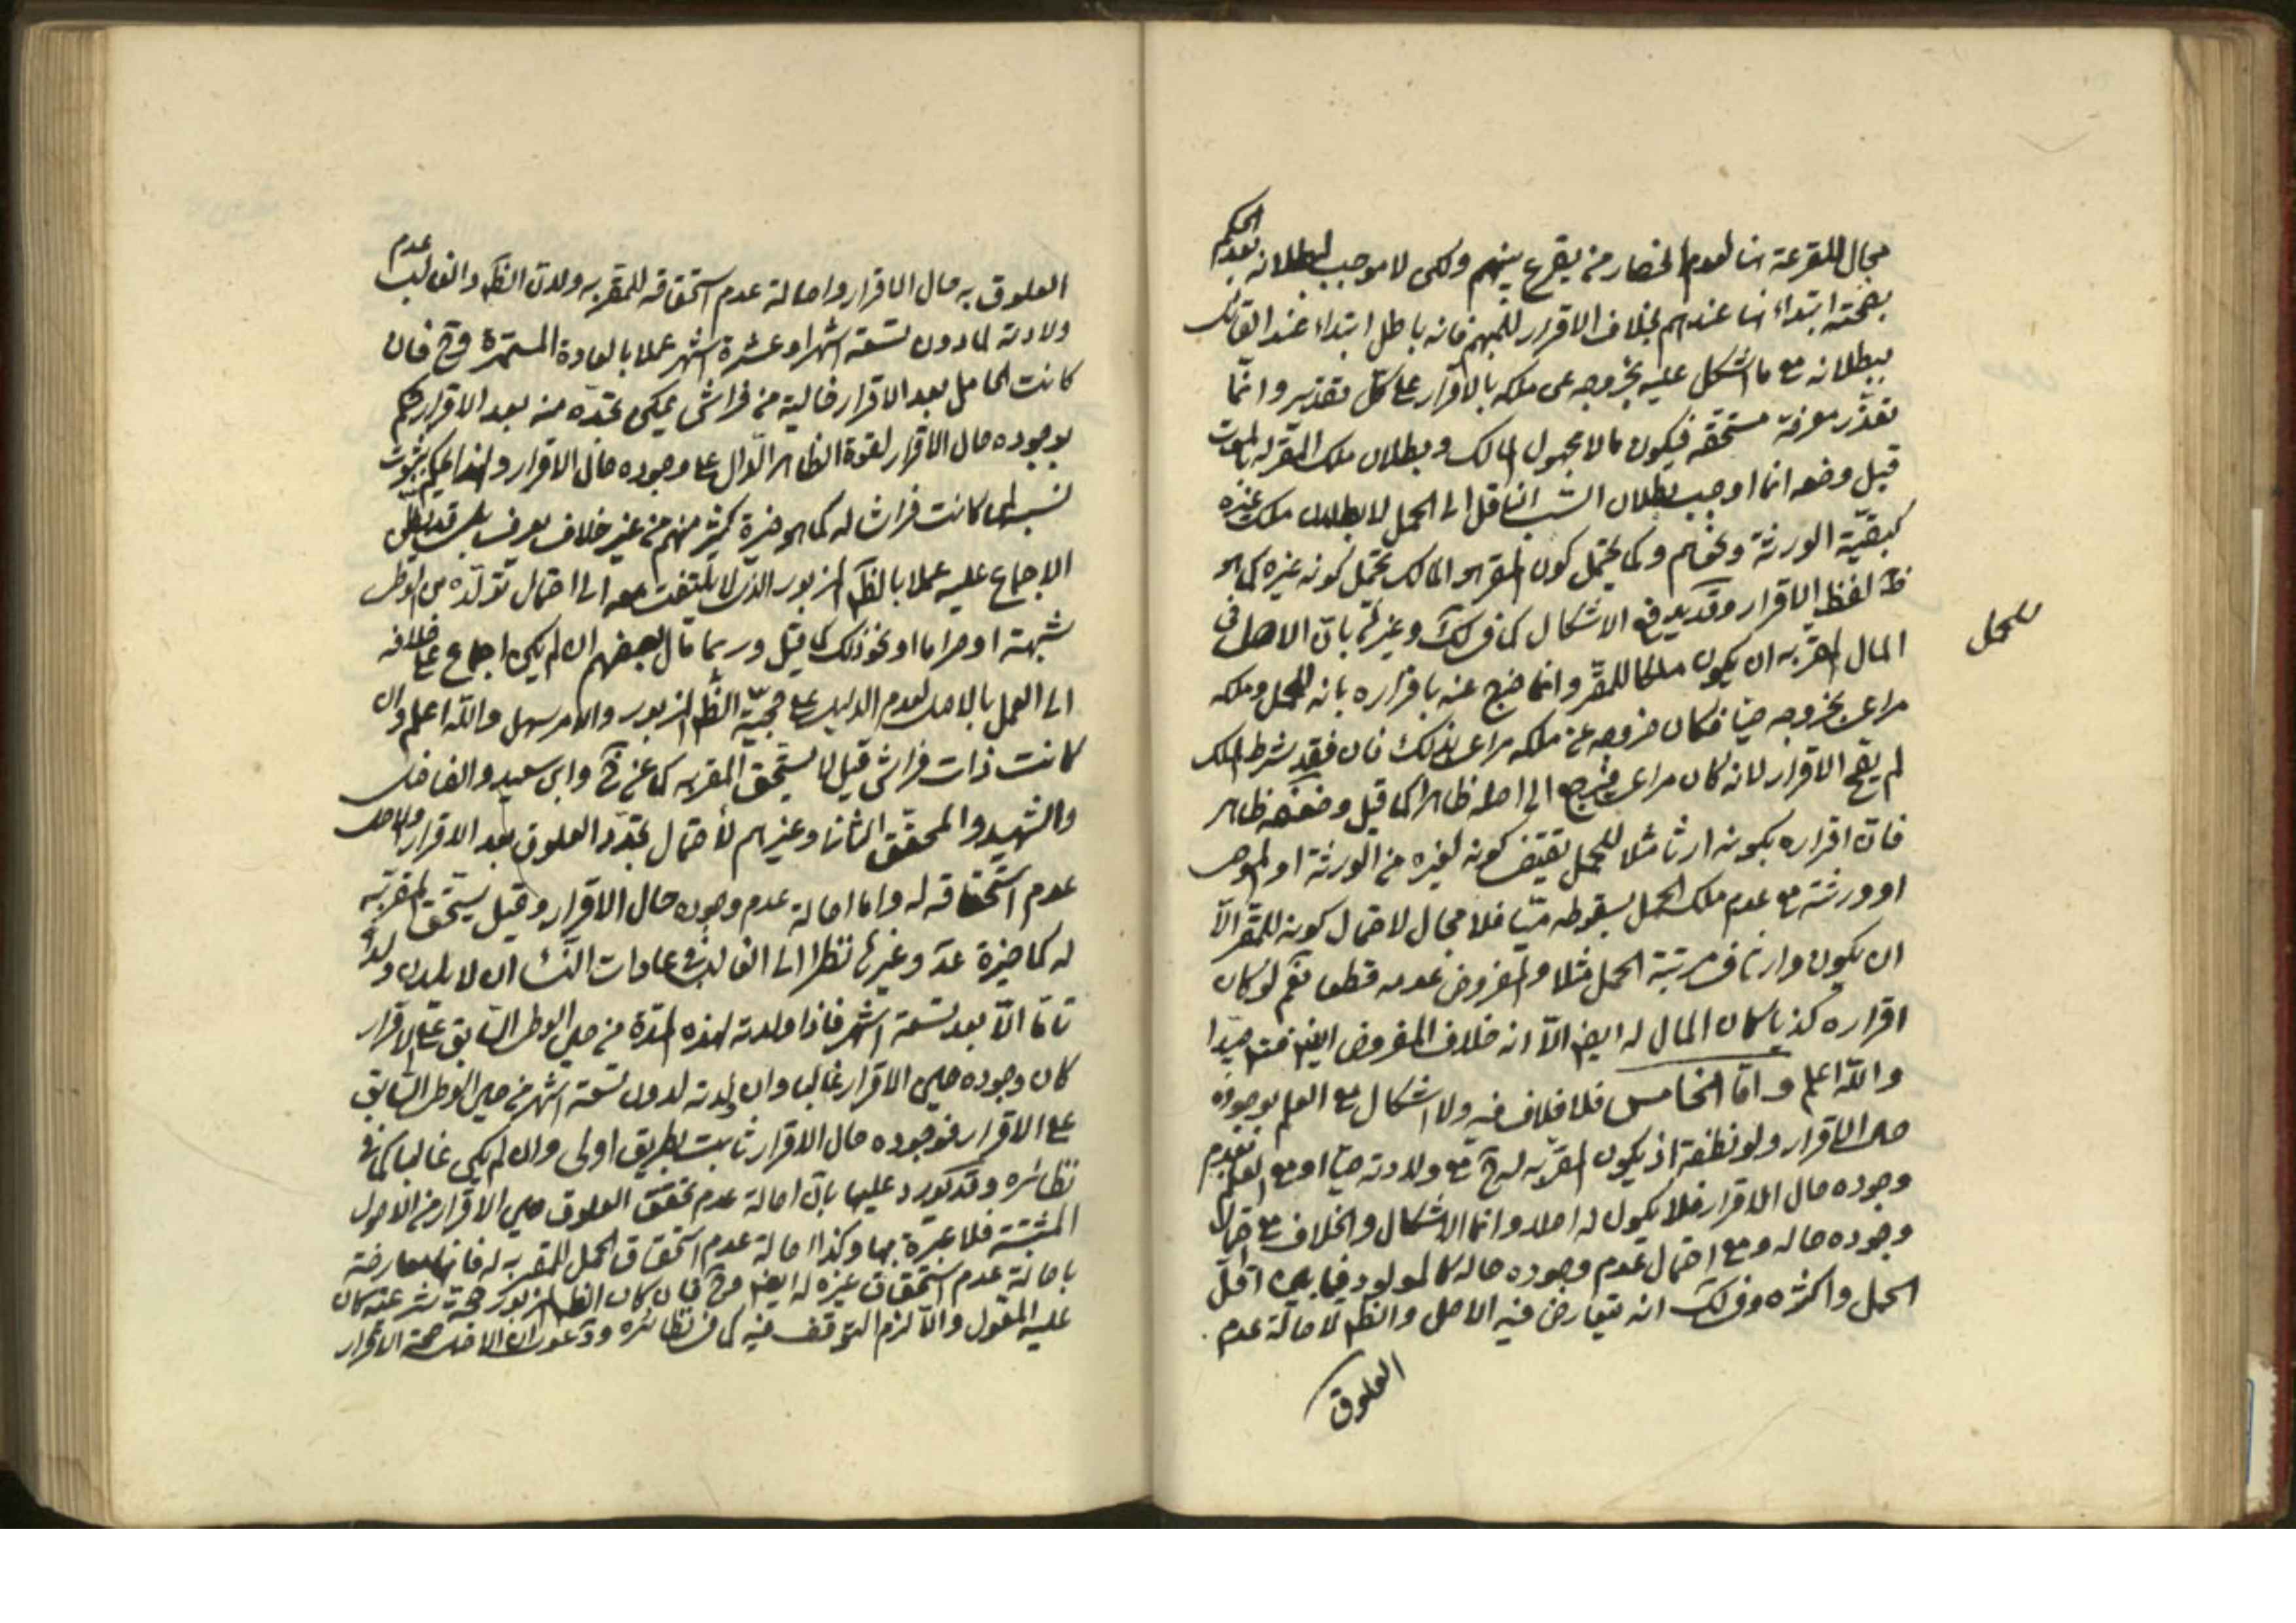 مجال للقرعة هنا لعدم انحصار من يقرع بينهم ولكن لا موجب لبطلانه بعد الحكم
بصحته ابتداء هنا عندهم بخلاف الاقرار للمبهم فانه باطل ابتداء عند القائل
ببطلانه مع ما اشكل عليه بخروجه عن ملكه بالاقرار على كل تقدير وانما
تعذر معرفة مستحقه فيكون مالا مجهول المالك وبطلان ملك المقر له بالموت
قبل وضعه انما اوجب بطلان السبب الناقل الى الحمل لا بطلان ملك غيره
كبقية الورثة ونحوهم وكما يحتمل كون المقر هو المالك يحتمل كونه غيره كما هو
ظ لفظ الاقرار وقد يدفع الاشكال كما في لك وغيرها بان الاصل في
المال المقر به ان يكون ملكا للمقر وانما خرج عنه باقراره بانه للحمل وملكه
للحمل
مراعى بخروجه حيا فكان خروجه عن ملكه مراعى بذلك فان فقد شرط الملك
لم يقع الاقرار لانه كان مراعى فيرجع الى اصله ظاهرا كما قيل وضعفه ظاهر
فان اقراره بكونه ارثا مثلا للحمل يقتضي كونه لغيره من الورثة او الموصي
او ورثته مع عدم ملك الحمل بسقوطه ميتا فلا مجال لاحتمال كونه للمقر الا
ان يكون وارثا في مرتبة الحمل مثلا والمفروض عدمه قطعا نعم لو كان
اقراره كذبا كان المال له ايض الا انه خلاف المفروض ايض فتدبر جيدا
والله اعلم واما الخامس فلا خلاف فيه ولا اشكال مع العلم بوجوده
حال الاقرار ولو نطفة اذ يكون المقر به له ح مع ولادته حيا او مع العلم بعدم
وجوده حال الاقرار فلا يكون له اصلا وانما الاشكال والخلاف مع احتمال
وجوده حاله ومع احتمال عدم وجوده حاله كالمولود فيما بين اقل
الحمل واكثره وفي لك انه يتعارض فيه الاصل والظ لاصالة عدم
العلوق
العلوق به حال الاقرار واصالة عدم استحقاقه للمقر به ولان الظ والغالب عدم
ولادته لما دون تسعة اشهر او عشرة اشهر عملا بالعادة المستمرة وح فان
كانت الحامل بعد الاقرار خالية من فراش يمكن تجدده منه بعد الاقرار حكم
بوجوده حال الاقرار لقوة الظاهر الدال على وجوده حال الاقرار ولهذا يحكم بثبوت
نسبه لمن كانت فراشا له كما هو خيرة كثير منهم من غير خلاف يعرف بل قد يظن
الاجماع عليه عملا بالظ المزبور الذي لا يلتفت معه الى احتمال تولده من الوطي
شبهة او حراما او نحو ذلك كما قيل وربما مال بعضهم ان لم يكن اجماع على خلافه
الى العمل بالاصل لعدم الدليل على حجية الظ المزبور والامر سهل والله اعلم وان
كانت ذات فراش قيل لا يستحق المقر به كما عن خ وابن سعيد والفاضل
والشهيد والمحقق الثاني وغيرهم لاحتمال تجدد العلوق بعد الاقرار والاصل
عدم استحقاقه له واما اصالة عدم وجوده حال الاقرار وقيل يستحق المقر به
له كما خيرة عد وغيرها نظرا الى الغالب في عادات النساء ان لا يلدن ولدا
تاما الا بعد تسعة اشهر فاذا ولدته لهذه المدة من حين الوطي السابق على الاقرار
كان وجوده حين الاقرار غالبا وان ولدته لدون تسعة اشهر من حين الوطي السابق
على الاقرار فوجوده حال الاقرار ثابت بطريق اولى وان لم يكن غالبا كما في
نظائره وقد يورد عليها بان اصالة عدم تحقق العلوق حين الاقرار من الاصول
المثبتة فلا عبرة بها وكذا اصالة عدم استحقاق الحمل المقر به له فانها معارضة
باصالة عدم استحقاق غيره له ايض وح فان كان الظ المزبور حجة شرعية كان
عليه المعول والا لزم التوقف فيه كما في نظائره ودعوى ان الاصل صحة الاقرار